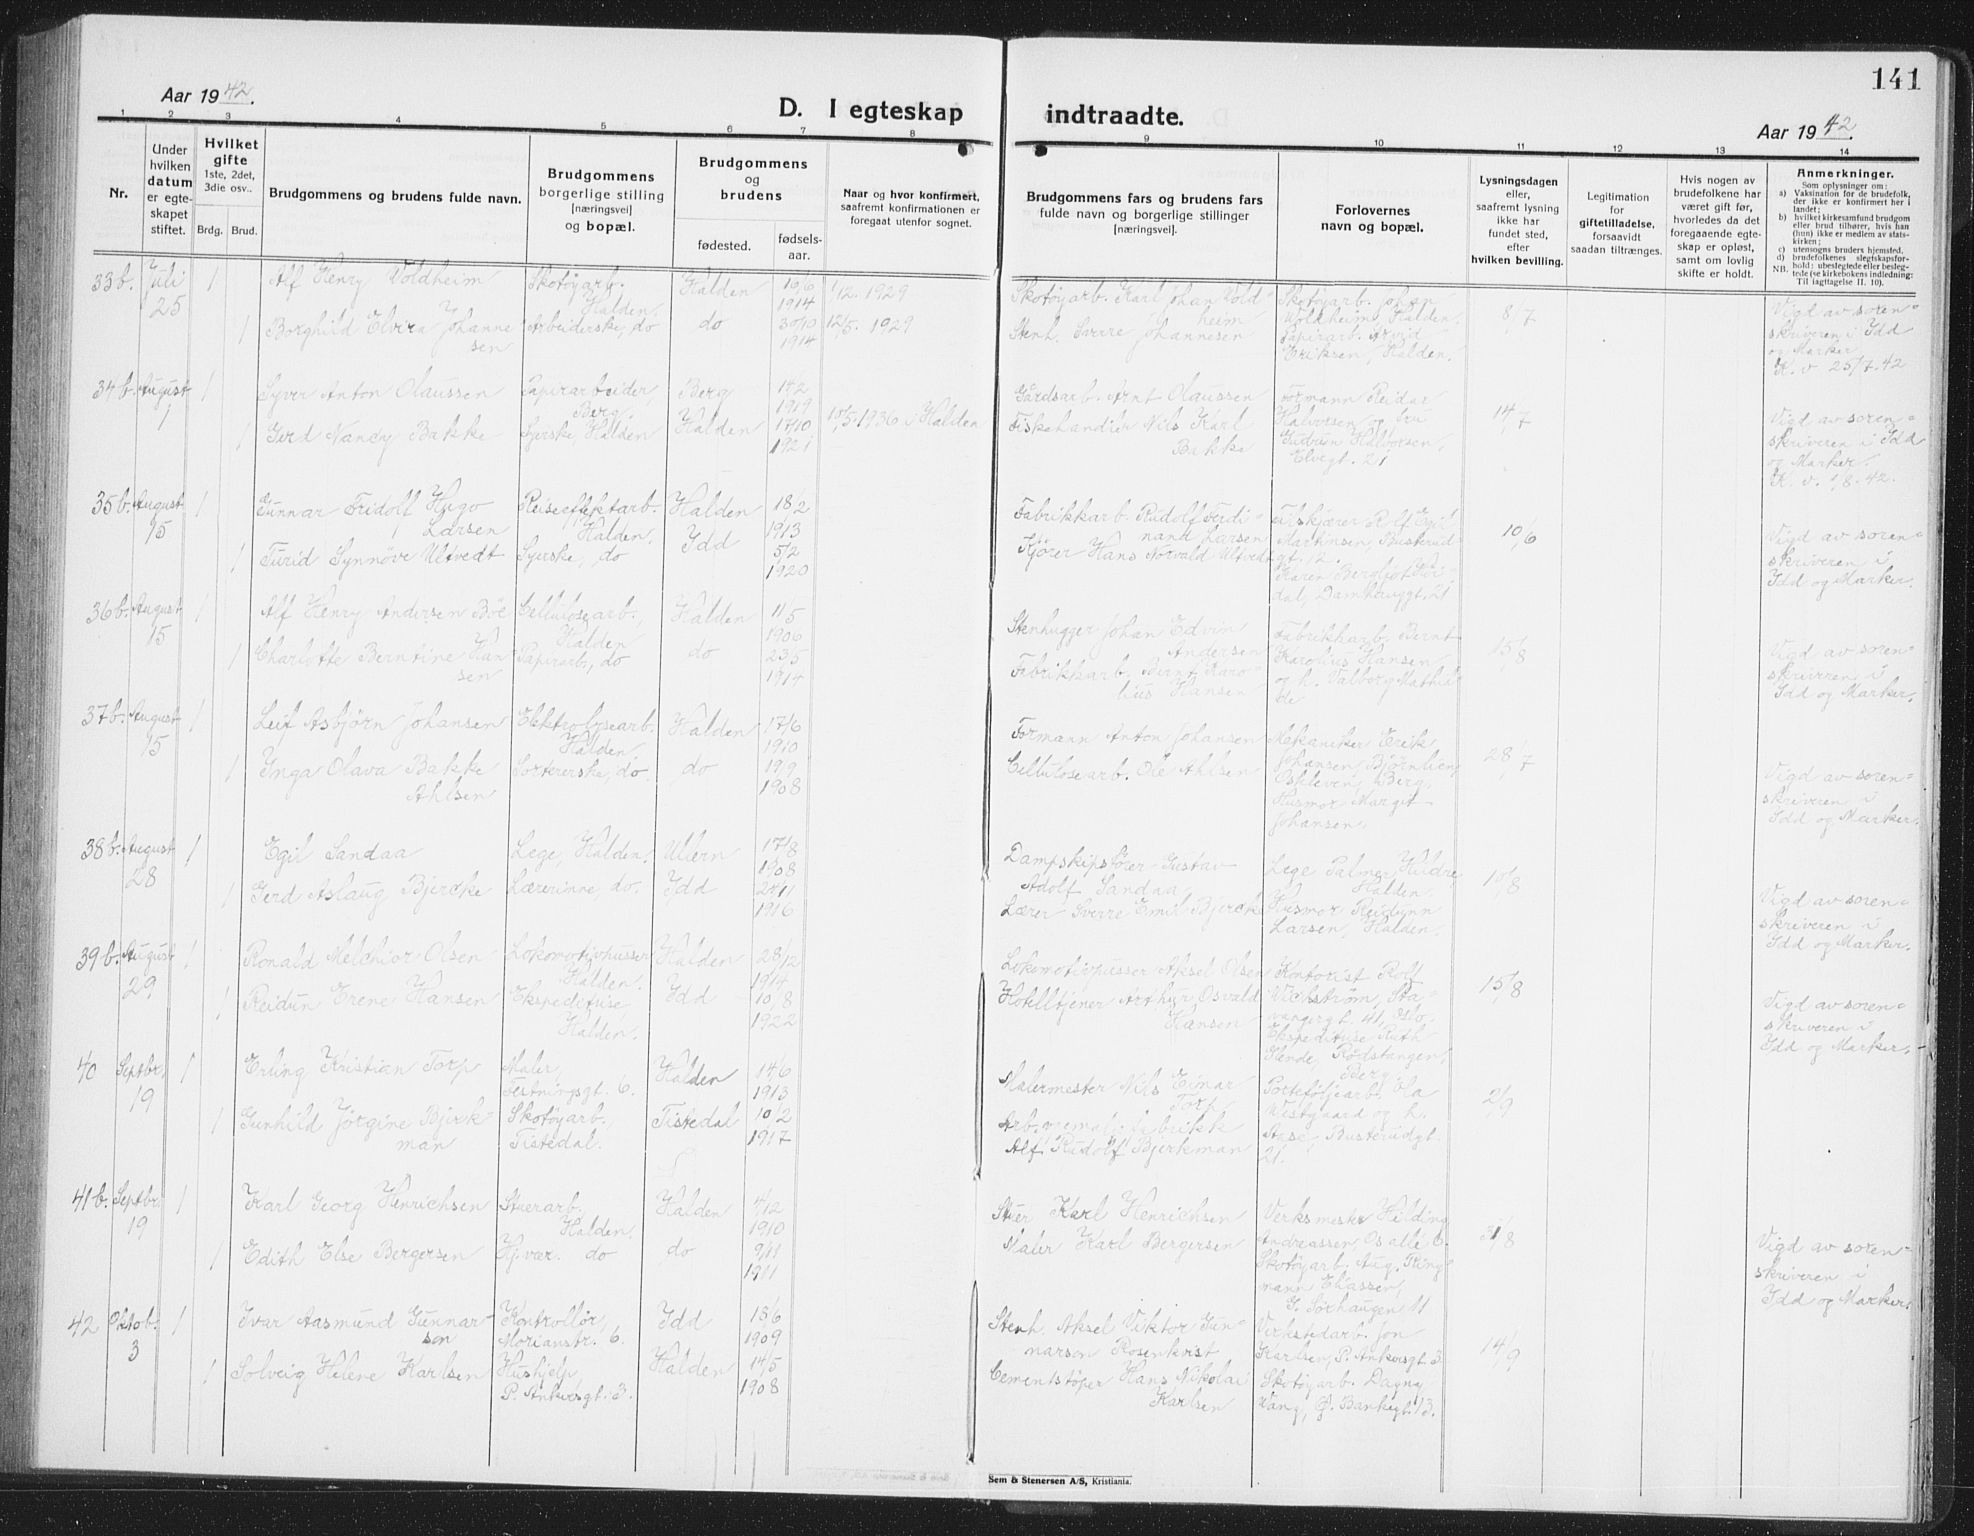 141
Aar 1942.
D. I egteskap indtraadte.
Aar 1942.
1 2 3 4 5 6 7 8 9 10 11 12 13 14
Nr.
Under hvilken datum er egteskapet stiftet.
Hvilket gifte
1ste, 2det, 3die osv..
Brdg. Brud.
Brudgommens og brudens fulde navn.
Brudgommens borgerlige stilling [næringsvei] og bopæl.
Brudgommens og brudens
fødested. fødsels-aar.
Naar og hvor konfirmert, saafremt konfirmationen er foregaat utenfor sognet.
Brudgommens fars og brudens fars fulde navn og borgerlige stillinger [næringsvei].
Forlovernes navn og bopæl.
Lysningsdagen eller, saafremt lysning ikke har fundet sted, efter hvilken bevilling.
Legitimation for giftetilladelse, forsaavidt saadan tiltrænges.
Hvis nogen av brudefolkene har været gift før, hvorledes da det foregaaende egteskap er opløst, samt om lovlig skifte er holdt.
Anmerkninger.
Som oplysninger om:
a) Vaksination for de brudefolk, der ikke er konfirmert her i landet;
b) hvilket kirkesamfund brudgom eller brud tilhører, hvis han (hun) ikke er medlem av statskirken;
c) utensogns bruders hjemsted.
d) brudefolkenes slegtskapsforhold: ubeslegtede eller beslegtede (se kirkebokens indledning:
NB. Til iagttagelse II. 10).
33b. Juli 25 1 Alf Henry Woldheim Skotøyarb. Halden Halden 16/6 1914 1/12. 1929 Skotøyarb. Karl Johan Woldheim Skotøyarb. Johan Woldheim, Halden. 8/7
1 Borghild Elvira Johannesen Arbeiderske, do do 30/10 1914 12/5. 1929 Stenh. Sverre Johannesen Papirarb. Arvid Eriksen, Halden. Vigd av sorenskriveren i Idd og Marker K. v. 25/7. 42
34b. August 1 1 Syver Anton Olaussen Papirarbeider, Berg. Berg 14/2 1919 Gårdsarb. Arnt Olaussen Formann Reidar Halvorsen og fru Gudrun Halvorsen Elvegt. 21 14/7
1 Gerd Nancy Bakke Syerske, Halden Halden 17/10 1921 10/5. 1936 i Halden Fiskehandler Nils Karl Bakke Vigd av sorenskriveren i Idd og Marker. K. v. 1/8. 42.
35b. August 15 1 Gunnar Fridolf Hugo Larsen Reiseeffektarb. Halden. Halden 18/2 1913 Fabrikkarb. Rudolf Ferdinand Larsen Filskjærer Rolf Egil Martinsen, Busterudgt. 12. 10/6
1 Turid Synnöve Ultvedt Syerske, do Idd 5/2 1920 Kjörer Hans Norvald Ultvedt Karen Bergljot Damhaugt. 21 Vigd av sorenskriveren i Idd og Marker.
36b. August 15 1 Alf Henry Andersen Böe Cellulosearb. Halden Halden 11/5 1906 Stenhugger Johan Edvin Andersen Fabrikkarb. Bernt Karolius Hansen og h. Valborg Mathilde 15/8
1 Charlotte Berntine Hansen Papirarb., do do 23/5 1914 Fabrikkarb. Bernt Karolius Hansen Vigd av sorenskriveren i Idd og Marker.
37b. August 15 1 Leif Asbjörn Johansen Elektrolysearb. Halden Halden 17/6 1910 Formann Anton Johansen Mekaniker Erik Johansen, Björnlien, Berg, Husmor Margit Johansen. 28/7
1 Inga Olava Bakke Ahlsen Sortererske, do. do 19/9 1908 Cellulosearb. Ole Ahlsen Vigd av sorenskriveren i Idd og Marker.
38b. August 28 1 Egil Sandaa Lege, Halden. Ullern 17/8 1908 Dampskipsförer Gustav Adolf Sandaa Lege Palmer Hudre Halden. 10/8
1 Gerd Aslaug Bjercke Lærerinne, do. Idd 24/11 1916 Lærer Sverre Emil Bjercke Husmor Reidunn Larsen, Halden. Vigd av sorenskriveren i Idd og Marker.
39b. August 29 1 Ronald Melchior Olsen Lokomotivpusser Halden. Halden 28/12 1914 Lokomotivpusser Aksel Olsen Kontorist Rolf Wickström, Stavangergt. 41, Oslo. 15/8
1 Reidun Erene Hansen Ekspeditrise Halden. Idd 10/8 1922 Hotelltjener Arthur Osvald Hansen Ekspeditrise Ruth Rödstangen, Berg. Vigd av sorenskriveren i Idd og Marker.
40 Septbr. 19 1 Erling Kristian Torp Maler, Festningsgt. 6. Halden 14/6 1913 Malermester Nils Einar Torp Porteföljearb. Ola Westgaard og h. Aase, Busterudgt. 21. 2/9
1 Gunhild Jörgine Bjerkman Skotöyarb. Tistedal. Tistedal 10/2 1917 Arb. fabrikk Alf Rudolf Bjerkman
41b. Septbr. 19 1 Karl Georg Henrichsen Stuerarb. Halden. Halden 4/12 1910 Stuer Karl Henrichsen Verksmester Hilding Andreassen, Os allé 31/8
1 Edith Else Bergersen Hj.vær. do do 9/11 1911 Maler Karl Bergersen Skotöyarb. Aug. Ringmann Eliassen, G. Sörhaugen 11 Vigd av sorenskriveren i Idd og Marker.
42 Oktob. 3 1 Ivar Aasmund Gunnarson Kontrollör, Morianstr. 6. Idd 18/6 1909 Stenh. Aksel Viktor Gunnarson Rosenkvist Verkstedarb. Jon Karlsen, P. Ankersgt. 3. 14/9
1 Solveig Helene Karlsen Hushjelp, P. Ankersgt. 3. Halden 14/5 1908 Cementstöper Hans Nikolai Karlsen Skotöyarb. Dagny Wang, Ö. Bankegt. 13.
Sem & Stenersen A/S, Kristiania.